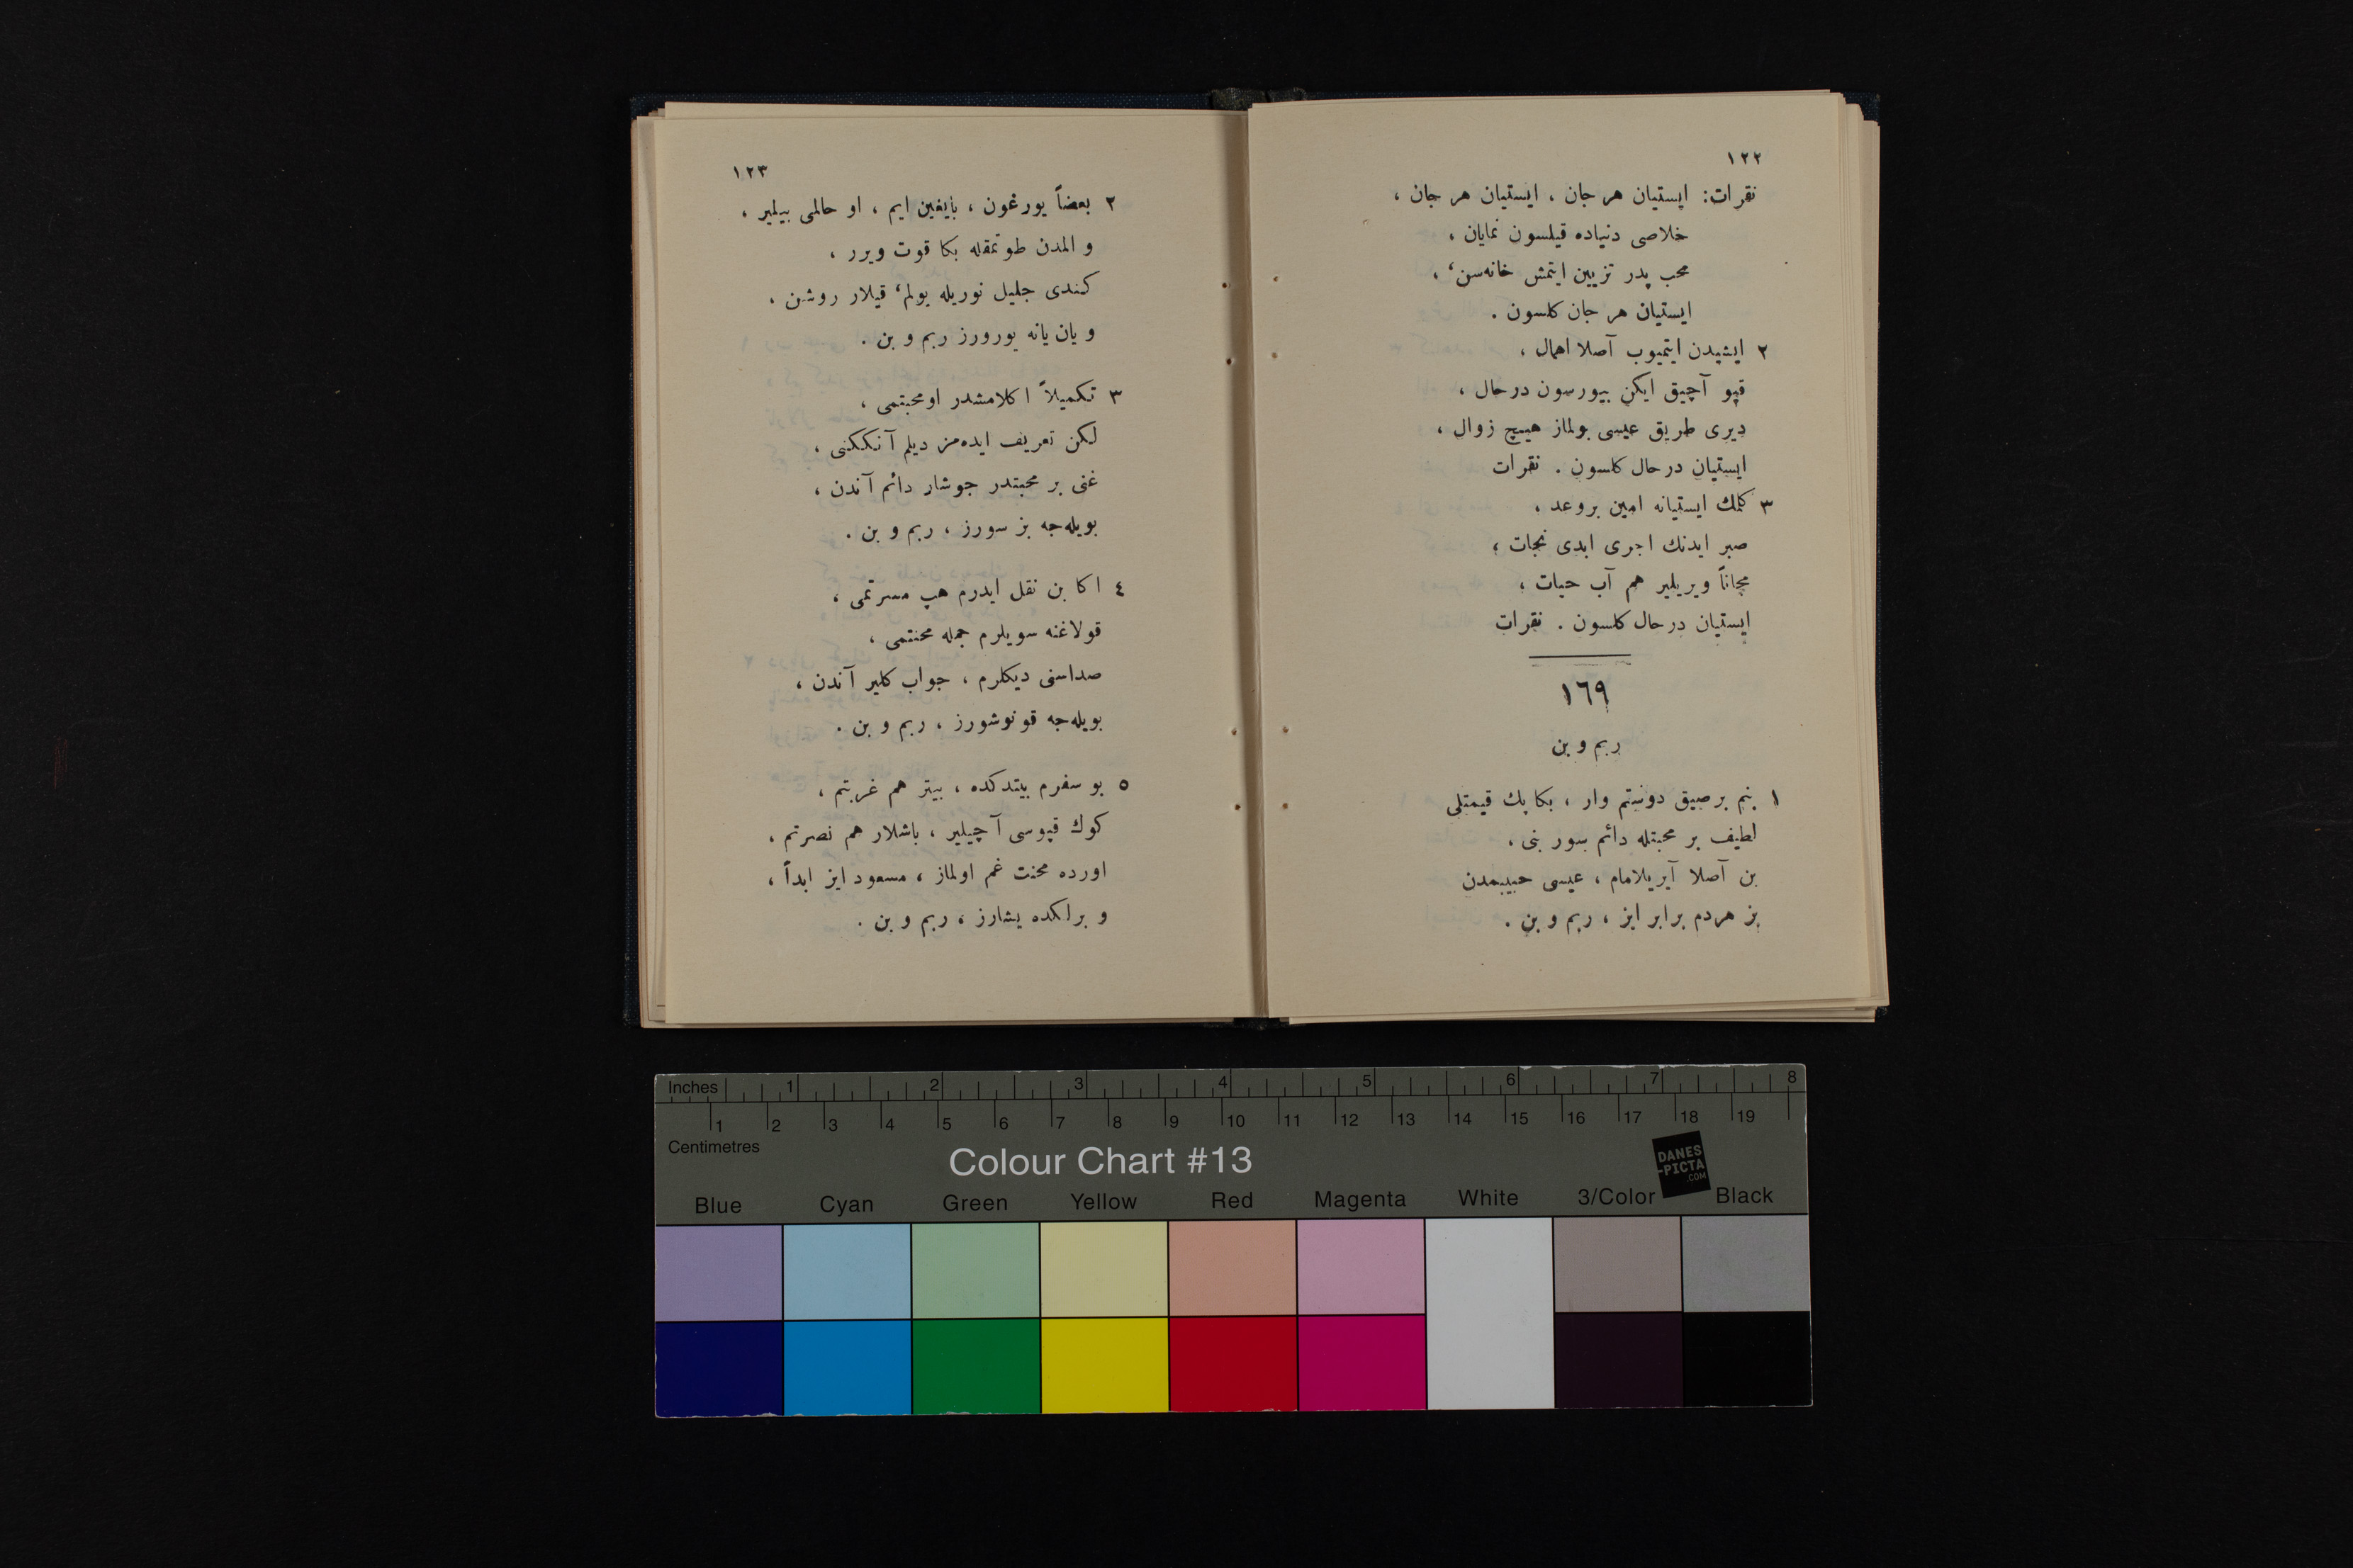 ١٢٢
نقرات: ايستيان هر جان ، ايستيان هر جان ،
خلاصى دنياده قيلسون نمايان ،
محب پدر تزيين ايتمش خانه‌سن‘ ،
ايستيان هر جان كلسون .
٢ ايشيدن ايتميوب آصلا اهمال ،
قپو آچيق ايكن بيورسون درحال ،
ديرى طريق عيسى بولماز هيچ زوال ،
ايستيان درحال كلسون . نقرات
٣ كلمك ايستيانه امين بروعد ،
صبر ايدنك اجرى ابدى نجات ؛
مجاناً ويريلير هم آب حيات ؛
ايستيان درحال كلسون . نقرات
١٦٩
ربم و بن
١ بنم برصيق دوستم وار ، بكا پك قيمتلى
لطيف بر محبتله دائم سور بنى ،
بن آصلا آيريلامام ، عيسى حبيبمدن
بز هردم برابر ايز ، ربم و بن .
١٢٣
٢ بعضاً يورغون ، بايغين ايم ، او حالمى بيلير ،
و المدن طوتمقله بكا قوت ويرر ،
كندى جليل نوريله يولم‘ قيلار روشن ،
و يان يانه يورورز ربم و بن .
٣ تكميلاً اكلامشدر اومحبتمى ،
لكن تعريف ايده‌مز ديلم آنككنى ،
غنى بر محبتدر جوشار دائم آندن ،
بويله‌جه بز سورز ، ربم و بن .
٤ اكا بن نقل ايدرم هپ مسرتمى ،
قولاغنه سويلرم جمله محنتمى ،
صداسنى ديكلرم ، جواب كلير آندن ،
بويله‌جه قونوشورز ، ربم و بن .
٥ بو سفرم بيتدكده ، بيتر هم غربتم ،
كوك قپوسى آچيلير ، باشلار هم نصرتم ،
اورده محنت غم اولماز ، مسعود ايز ابداً ،
و برلكده يشارز ، ربم و بن .
Inches 1 2 3 4 5 6 7 8
1 2 3 4 5 6 7 8 9 10 11 12 13 14 15 16 17 18 19
Centimetres
Colour Chart #13
DANES
-PICTA
.COM
Blue Cyan Green Yellow Red Magenta White 3/Color Black